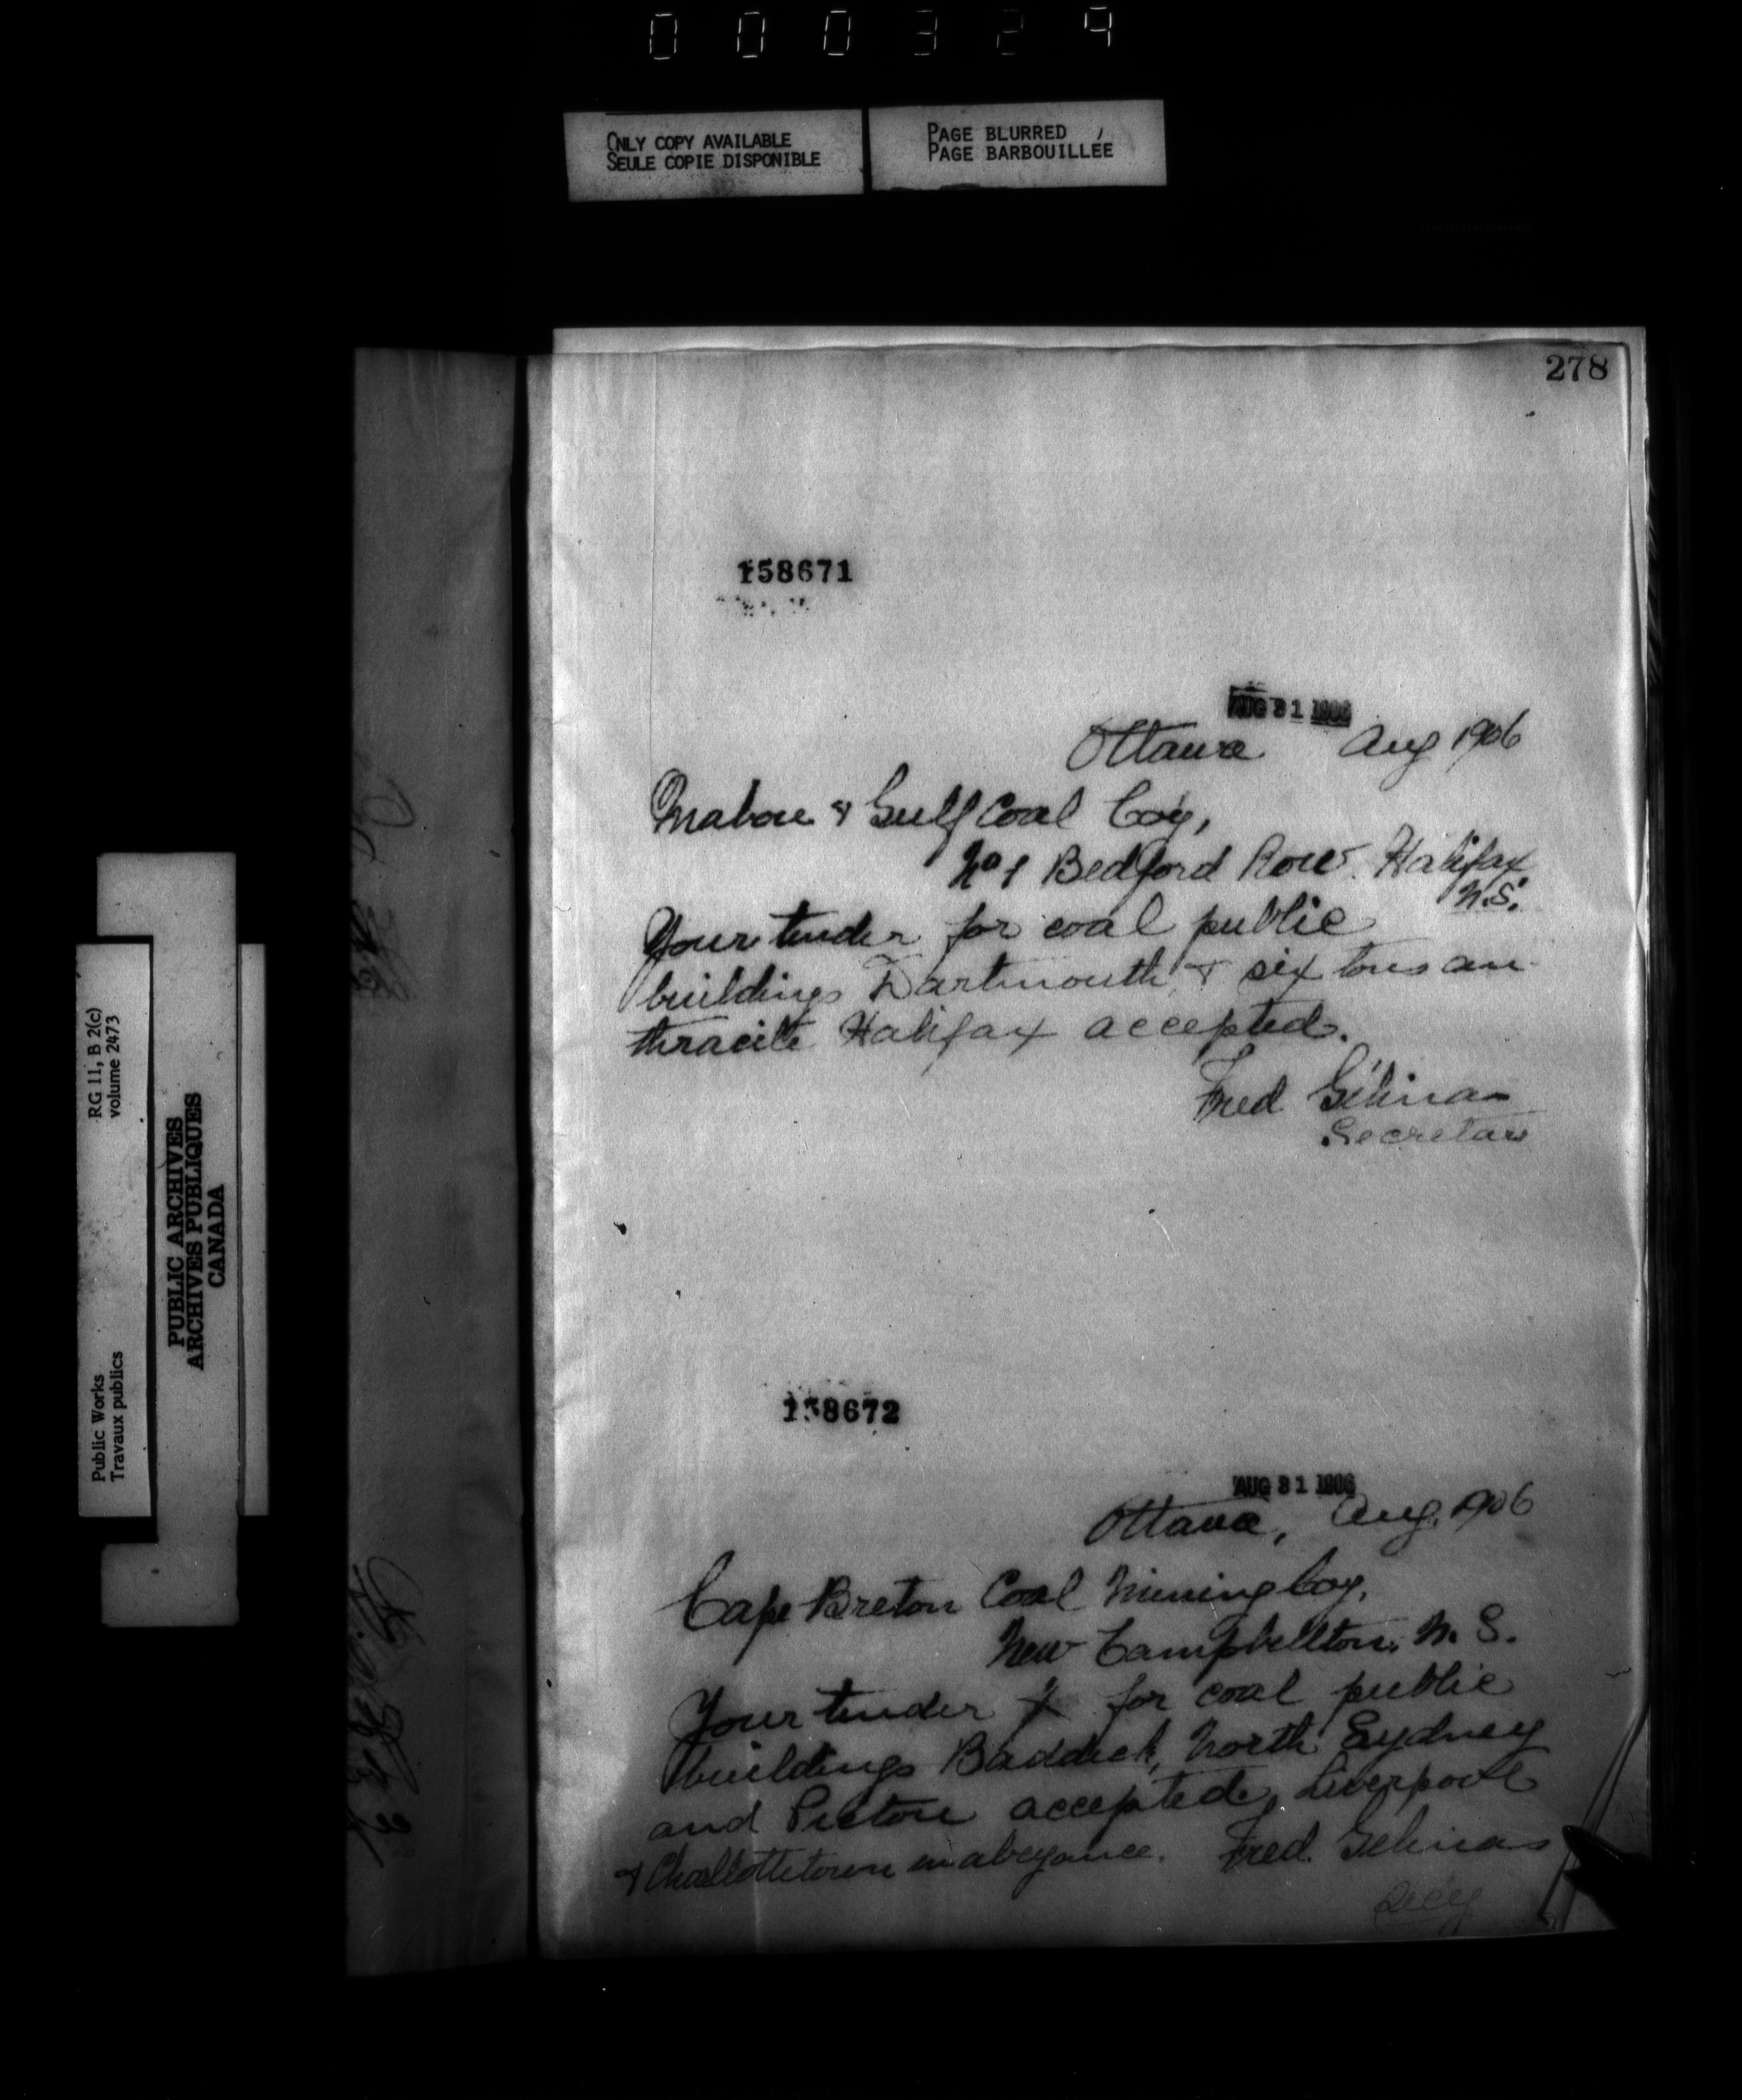 000329
ONLY COPY AVAILABLE
SEULE COPIE DISPONIBLE
PAGE BLURRED
PAGE BARBOUILLÉE
278
158671
AUG 31 1906
Ottawa Aug 1906
Mabou & Gulf Coal Coy,
No 1 Bedford Row. Halifax
N.S.
Your tender for coal public
buildings Dartmouth & six tons an-
thracite Halifax accepted.
Fred Gélinas
Secretary
158672
AUG 31 1906
Ottawa, Aug. 1906
Cape Breton Coal Mining Coy,
New Campbellton, N. S.
Your tender for coal public
buildings Baddeck, North Sydney
and Pictou accepted, Liverpool
& Charlottetown in abeyance. Fred. Gélinas
Secy
RG 11, B 2(c)
volume 2473
Public Works
Travaux publics
PUBLIC ARCHIVES
ARCHIVES PUBLIQUES
CANADA